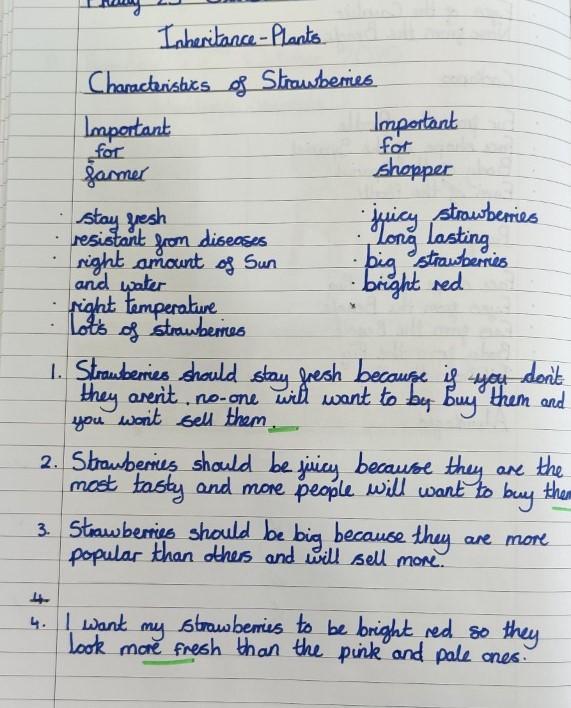 Inheritance - Plants
Characteristics of Strawberries
Important for farmer
Important for shopper
· stay fresh
· resistant from diseases
· right amount of Sun
and water
· right temperature
· lot's of strawberries
· juicy strawberries
· Long lasting
· big strawberries
· bright red
1. Strawberries should stay fresh because if you don't
they aren't, no-one will want to by buy them and
you won't sell them.
2. Strawberries should be juicy because they are the
most tasty and more people will want to buy them
3. Strawberries should be big because they are more
popular than others and will sell more.
4.
4. I want my strawberries to be bright red so they
look more fresh than the pink and pale ones.